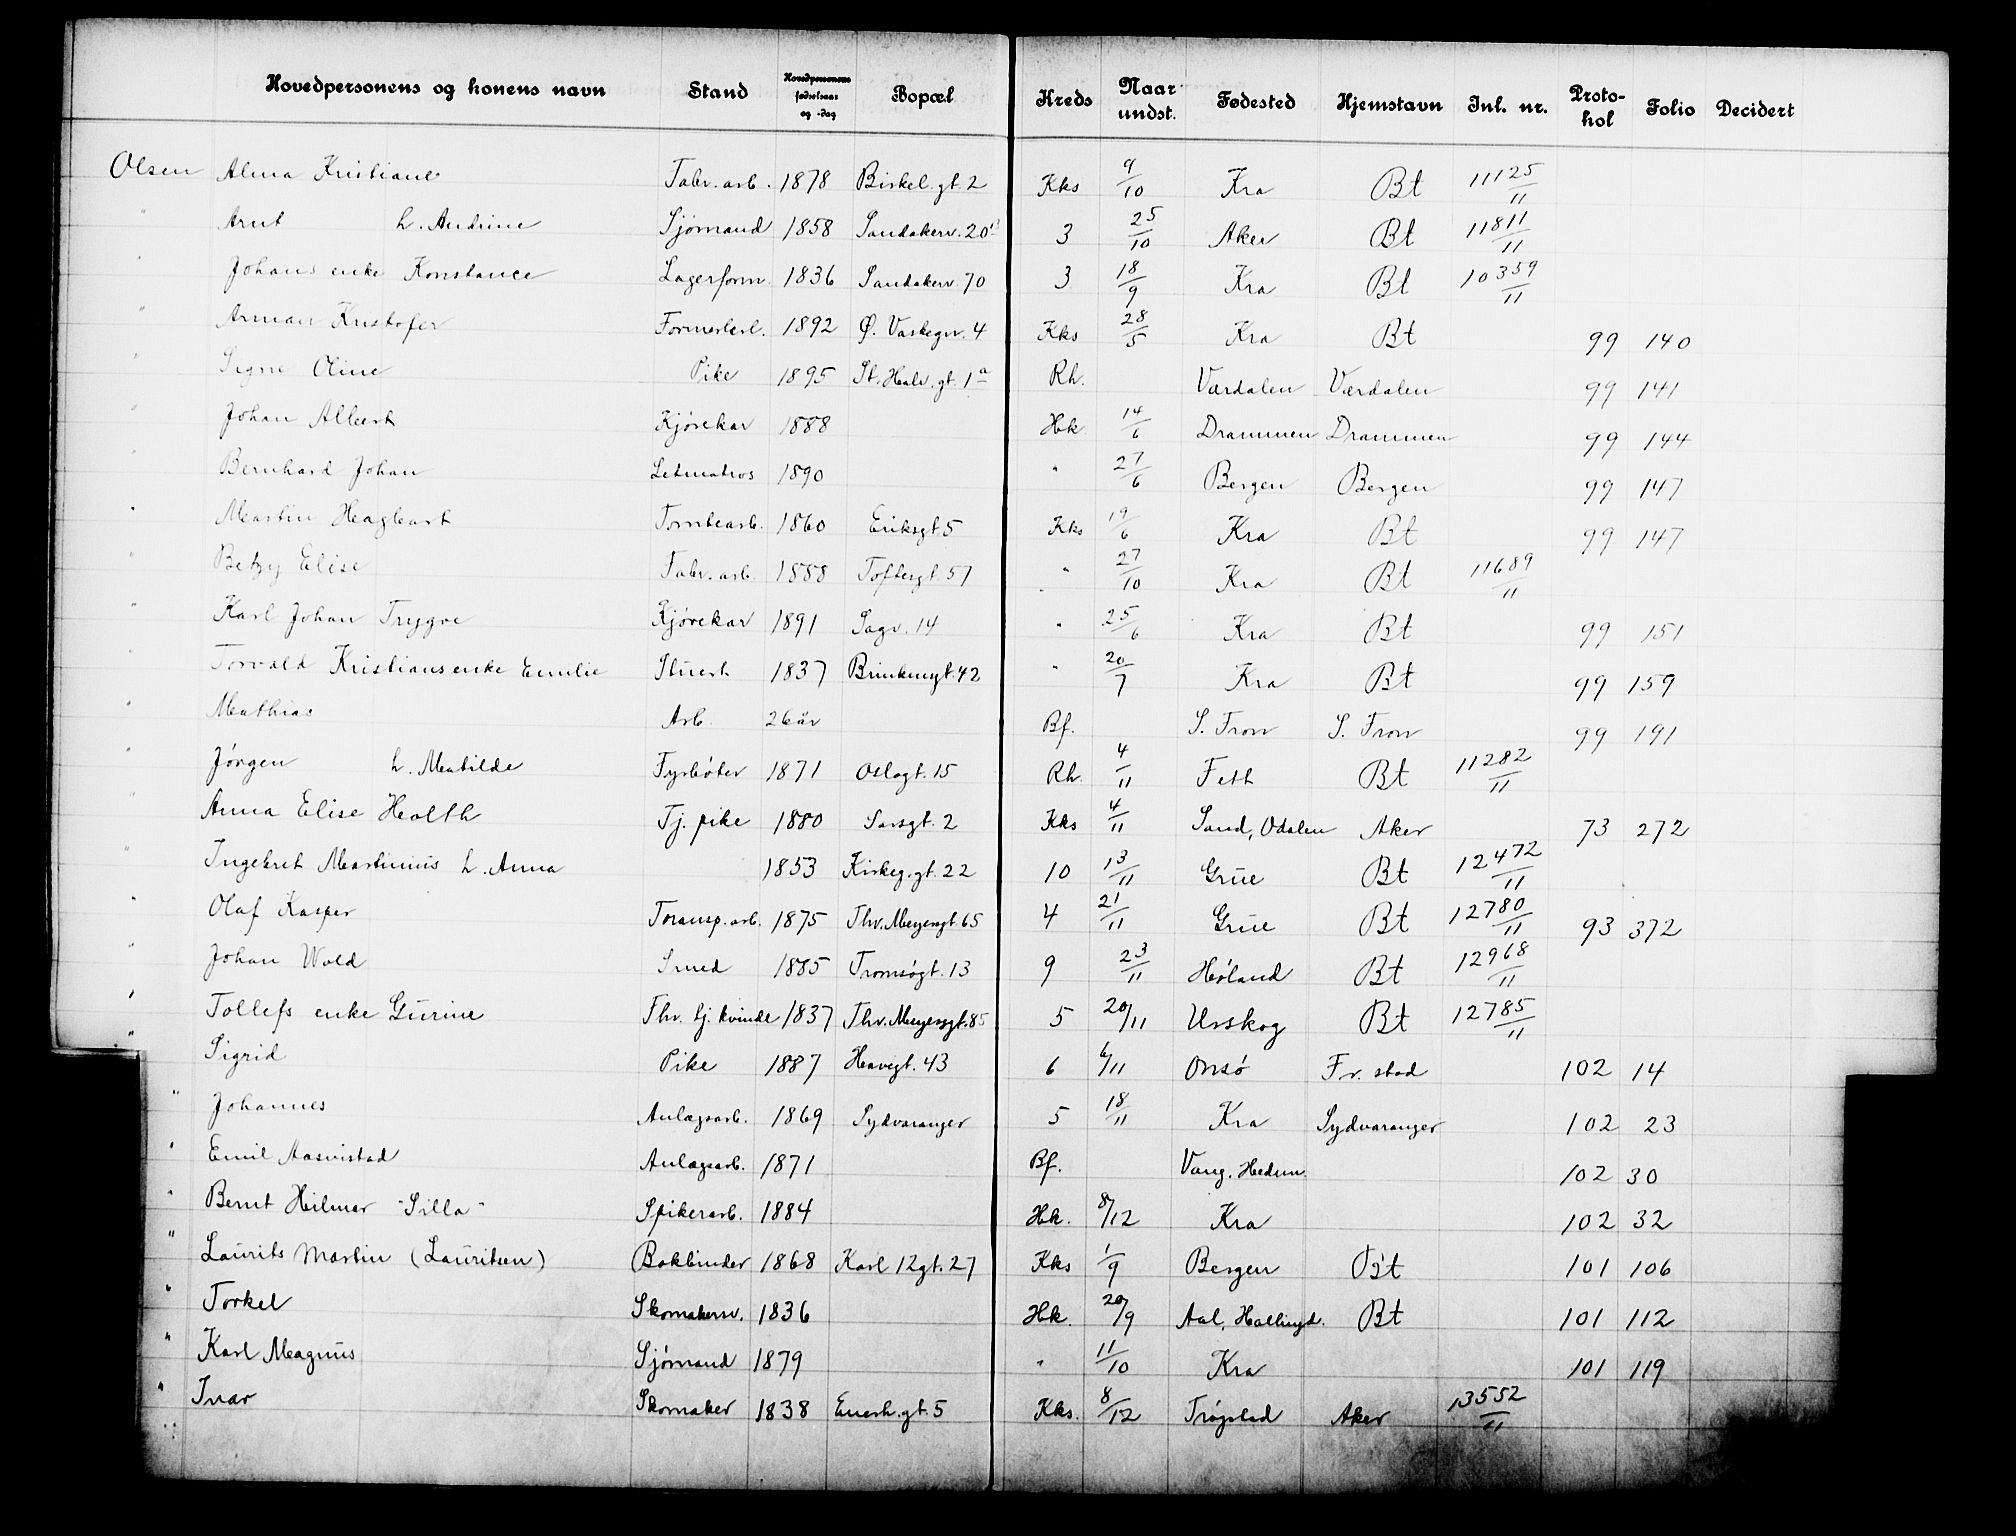 Hovedpersonens og konens navn Stand Hovedpersonens fødselsaar og -dag Bopæl Kreds Naar undst. Fødested Hjemstavn Inl. nr. Proto-kol Folio Decidert
Olsen Alma Kristiane Fabr. arb. 1878 Birkel. gt. 2 Kks 9/10 Kra Bt 11125/11
" Arnt h. Andrine Sjømand 1858 Sandakerv. 20B 3 25/10 Aker Bt 11811/11
Johans enke Konstance Lagerform. 1836 Sandakerv. 70 3 18/9 Kra Bt 10359/11
" Arman Kristofer Formerlærl. 1892 Ø. Vaskegn. 4 Kks 28/5 Kra Bt 99 140
" Signe Oline Pike 1895 St. Halv. gt. 1a Rh. Værdalen Værdalen 99 141
" Johan Albert Kjørekar 1888 Hk. 14/6 Drammen Drammen 99 144
" Bernhard Johan Letmatros 1890 " 27/6 Bergen Bergen 99 147
" Martin Hagbart Tomtearb. 1860 Eriksgt. 5 Kks 19/6 Kra Bt 99 147
" Betzy Elise Fabr. arb. 1888 Toftesgt. 57 " 27/10 Kra Bt 11689/11
" Karl Johan Trygve Kjørekar 1891 Sagv. 14 " 25/6 Kra Bt 99 151
" Torvald Kristiansenke Emilie Stuert 1837 Brinkengt. 42 " 20/7 Kra Bt 99 159
" Mathias Arb. 26 år Bf. S. Fron S. Fron 99 191
" Jørgen h. Matilde Fyrbøter 1871 Oslogt. 15 Rh. 4/11 Feth Bt 11282/11
" Anna Elise Holth Tj. pike 1880 Sarsgt. 2 Kks 4/11 Sand, Odalen Aker 73 272
" Ingebret Martinius h. Anna 1853 Kirkeg. gt. 22 10 13/11 Grue Bt 12472/11
" Olaf Kasper Transp. arb. 1875 Thv. Meyersgt. 65 4 21/11 Grue Bt 12780/11 93 372
" Johan Wold Smed 1885 Tromsøgt. 13 9 23/11 Høland Bt 12968/11
" Tollefs enke Gurine Fhv. tj. kvinde 1837 Thv. Meyersgt. 85 5 20/11 Urskog Bt 12785/11
" Sigrid Pike 1887 Havegt. 43 6 6/11 Onsø Fr. stad 102 14
" Johannes Anlægsarb. 1869 Sydvaranger 5 18/11 Kra Sydvaranger 102 23
" Emil Aasvistad Anlægsarb. 1871 Bf. Vang, Hedm. 102 30
" Bernt Hilmar "Silla" Spikerarb. 1884 Hk. 8/12 Kra 102 32
" Laurits Martin (Lauritsen) Bokbinder 1868 Karl 12gt. 27 Kks 1/9 Bergen Bt 101 106
" Torkel Skomakersv. 1836 Hk. 20/9 Aal, Hallingd. Bt 101 112
" Karl Magnus Sjømand 1879 " 11/10 Kra 101 119
" Ivar Skomaker 1838 Enerh. gt. 5 Kks. 8/12 Trøgstad Aker 13552/11